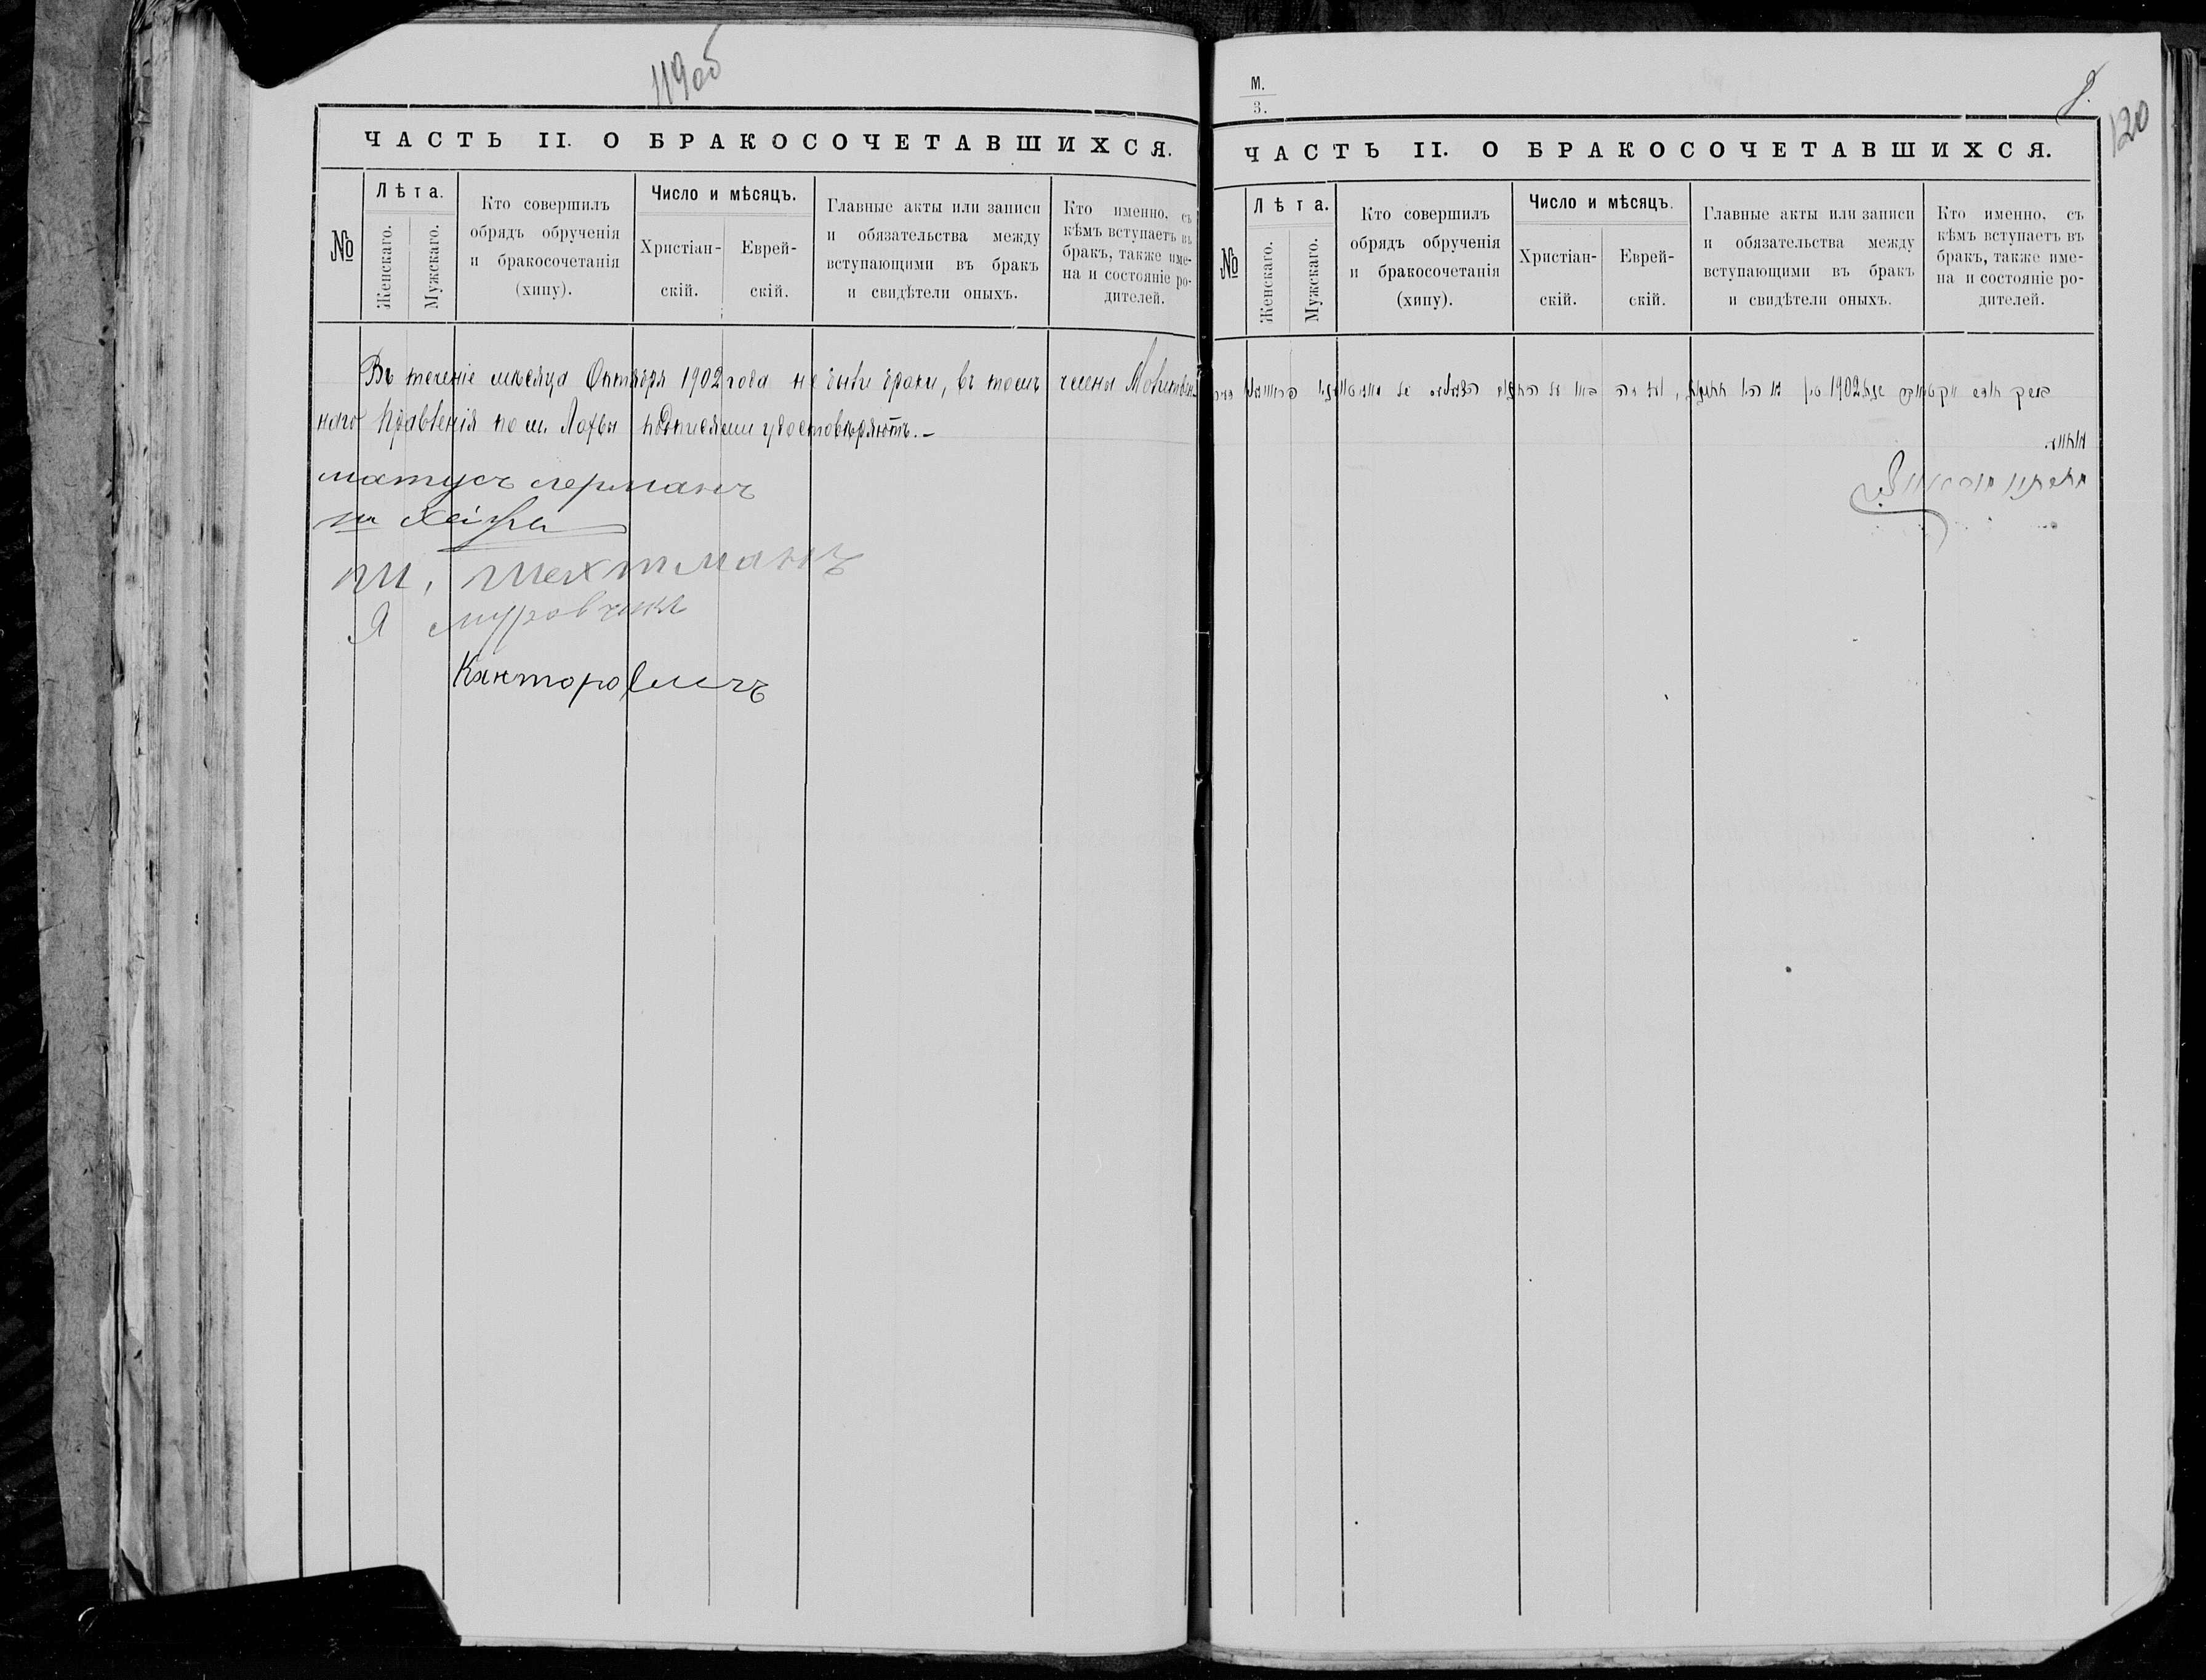 119об
ЧАСТЬ II. О БРАКОСОЧЕТАВШИХСЯ.
№
Лѣта.
Женскаго.
Мужскаго.
Кто совершилъ
обрядъ обрученія
и бракосочетанія
(хипу).
Число и мѣсяцъ.
Христіан-
скій.
Еврей-
скій.
Главные акты или записи
и обязательства между
вступающими въ бракъ
и свидѣтели оныхъ.
Кто именно, съ
кѣмъ вступаетъ въ
бракъ, также име-
на и состояніе ро-
дителей.
Въ теченіе мѣсяца Октября 1902 года не были браки, въ томъ члены Молитвен-
наго Правленія по м. Лахвы подписями удостовѣряютъ.—
матусъ лерманъ
Шехтманъ
Я муровчикъ
Канторовичъ
М.
3.
8.
120
ЧАСТЬ II. О БРАКОСОЧЕТАВШИХСЯ.
№
Лѣта.
Женскаго.
Мужскаго.
Кто совершилъ
обрядъ обрученія
и бракосочетанія
(хипу).
Число и мѣсяцъ.
Христіан-
скій.
Еврей-
скій.
Главные акты или записи
и обязательства между
вступающими въ бракъ
и свидѣтели оныхъ.
Кто именно, съ
кѣмъ вступаетъ въ
бракъ, также име-
на и состояніе ро-
дителей.
במשך חודש אקטאבער 1902 לא היו חתונות